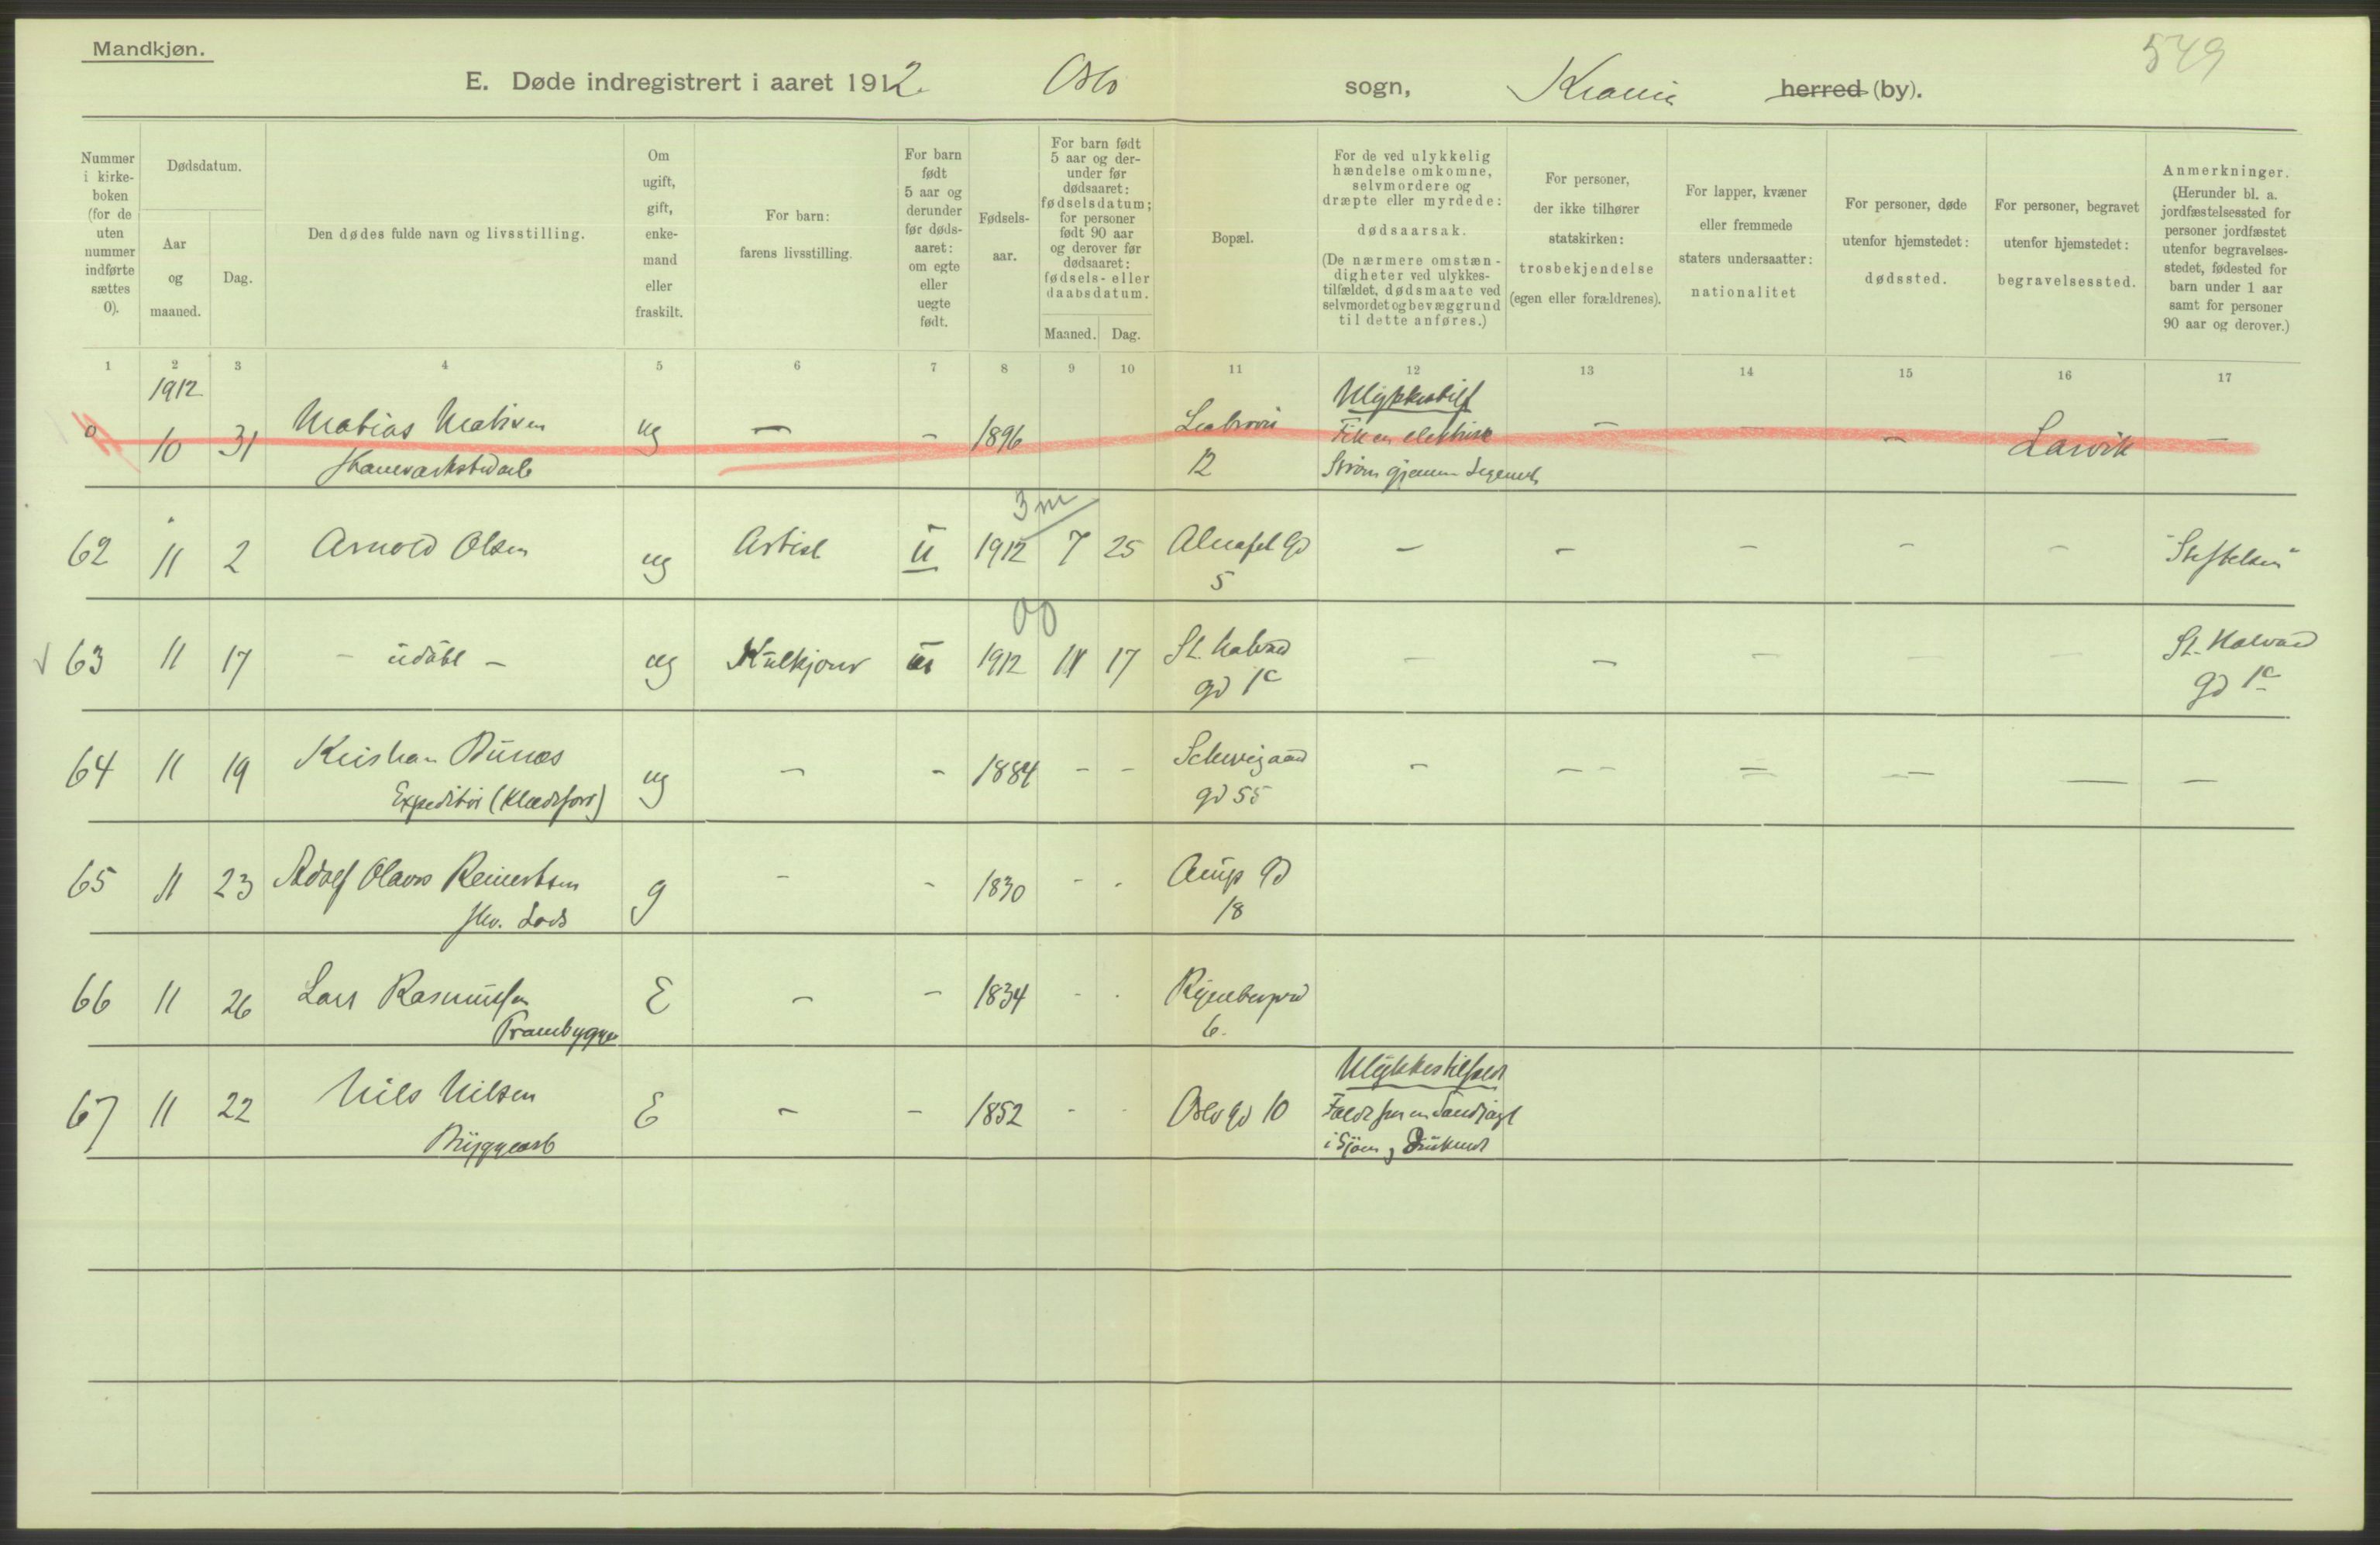 Mandkjøn.
549
E. Døde indregistrert i aaret 1912 Oslo sogn, Krania herred (by).
Nummer i kirke-boken (for de uten nummer indførte sættes 0).
Dødsdatum.
Aar og maaned.
Dag.
Den dødes fulde navn og livsstilling.
Om ugift, gift, enke-mand eller fraskilt.
For barn: farens livsstilling.
For barn født 5 aar og derunder før døds-aaret: om egte eller uegte født.
Fødsels-aar.
For barn født 5 aar og der-under før dødsaaret: fødselsdatum; for personer født 90 aar og derover før dødsaaret: fødsels- eller daabsdatum.
Maaned. Dag.
Bopæl.
For de ved ulykkelig hændelse omkomne, selvmordere og dræpte eller myrdede: dødsaarsak. (De nærmere omstæn-digheter ved ulykkes-tilfældet, dødsmaate ved selvmordet og bevæggrund til dette anføres.)
For personer, der ikke tilhører statskirken: trosbekjendelse (egen eller forældrenes).
For lapper, kvæner eller fremmede staters undersaatter: nationalitet
For personer, døde utenfor hjemstedet: dødssted.
For personer, begravet utenfor hjemstedet: begravelsessted.
Anmerkninger. (Herunder bl. a. jordfæstelsessted for personer jordfæstet utenfor begravelses-stedet, fødested for barn under 1 aar samt for personer 90 aar og derover.)
1 2 3 4 5 6 7 8 9 10 11 12 13 14 15 16 17
1912 Ulykkestilf
0 10 31 Matias Mathisen ug — – 1896 Fik en elektrisk – – – Larvik –
12 Strøm gjennem Legemet
3 m
62 11 2 Arnold Olsen ug Artist u 1912 7 25 Alnafet Gd – – – – – "Stiftelsen"
5
00
63 11 17 – udøbt – ug Kulkjører 1912 11 17 St. Halvard – – – – – St. Halvard
gd 1c gd 1c
64 11 19 Kristian Bunæs ug – – 1884 – – Schweigaard – – – – – – – –
Expeditør (Klædesforr) gd 55
65 11 23 Adolf Olavus Reinertsen g – – 1830 – - Arups Gd
fhv. Lods 18
66 11 26 Lars Rasmussen E – – 1834 - - Ryenbergvd
Prambygger 6.
Ulykkestilfæld
67 11 22 Nils Nilsen E – – 1852 - - Oslo Gd 10 Faldt fra en Sandjagt
Bryggearb i Sjøen, Druknet